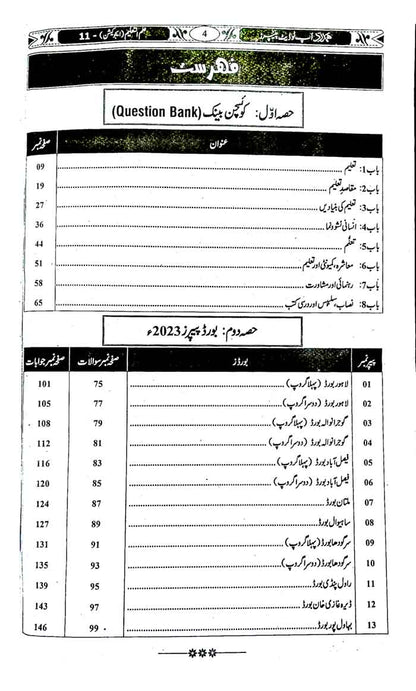 علم التعلیم (ایجوکیشن) - 11
4
اپ ٹو ڈیٹ پیپرز
فہرست
حصہ اوّل: کوئسچن بینک (Question Bank)
عنوان صفحہ نمبر
باب 1: تعلیم 09
باب 2: مقاصدِ تعلیم 19
باب 3: تعلیم کی بنیادیں 27
باب 4: انسانی نشوونما 36
باب 5: تعلّم 44
باب 6: معاشرہ، کمیونٹی اور تعلیم 51
باب 7: رہنمائی اور مشاورت 58
باب 8: نصاب، سلیبس اور درسی کتب 65
حصہ دوم: بورڈ پیپرز 2023ء
پیپر نمبر بورڈز صفحہ نمبر سوالات صفحہ نمبر جوابات
01 لاہور بورڈ (پہلا گروپ) 75 101
02 لاہور بورڈ (دوسرا گروپ) 77 105
03 گوجرانوالہ بورڈ (پہلا گروپ) 79 108
04 گوجرانوالہ بورڈ (دوسرا گروپ) 81 112
05 فیصل آباد بورڈ (پہلا گروپ) 83 116
06 فیصل آباد بورڈ (دوسرا گروپ) 85 120
07 ملتان بورڈ 87 124
08 ساہیوال بورڈ 89 127
09 سرگودھا بورڈ (پہلا گروپ) 91 131
10 سرگودھا بورڈ (دوسرا گروپ) 93 135
11 راولپنڈی بورڈ 95 139
12 ڈیرہ غازی خان بورڈ 97 143
13 بہاولپور بورڈ 99 146